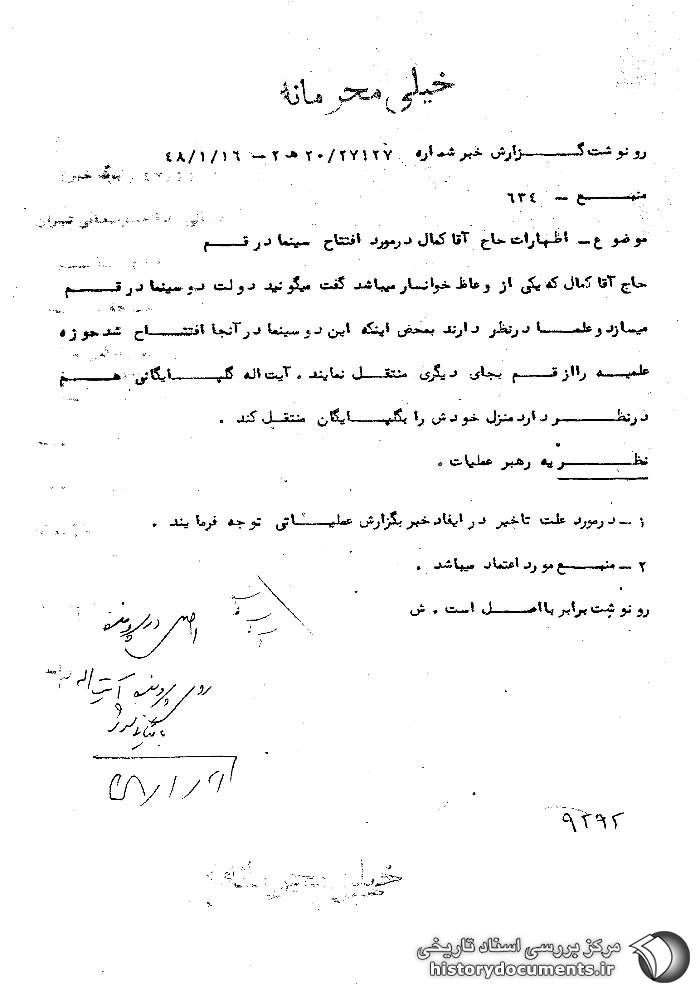 خیلی محرمانه
رونوشت گزارش خبر شماره ۲۰/۲۷۱۲۷ هـ ۲ – ۴۸/۱/۱۶
منبع – ۶۳۴
موضوع – اظهارات حاج آقا کمال درمورد افتتاح سینما در قم
حاج آقا کمال که یکی از وعاظ خوانسار میباشد گفت میگویند دولت دو سینما در قم
میسازد و علما درنظر دارند بمحض اینکه این دو سینما در آنجا افتتاح شد حوزه
علمیه را از قم بجای دیگری منتقل نمایند . آیت اله گلپایگانی هم
درنظر دارد منزل خودش را بگلپایگان منتقل کند .
نظریه رهبر عملیات .
۱ – درمورد علت تاخیر در ایفاد خبر بگزارش عملیاتی توجه فرمایند .
۲ – منبع مورد اعتماد میباشد .
رونوشت برابر با اصل است . ش
اصل در پرونده
روی پرونده آیت اله
۹۲۹۲
خیلی محرمانه
مرکز بررسی اسناد تاریخی
historydocuments.ir